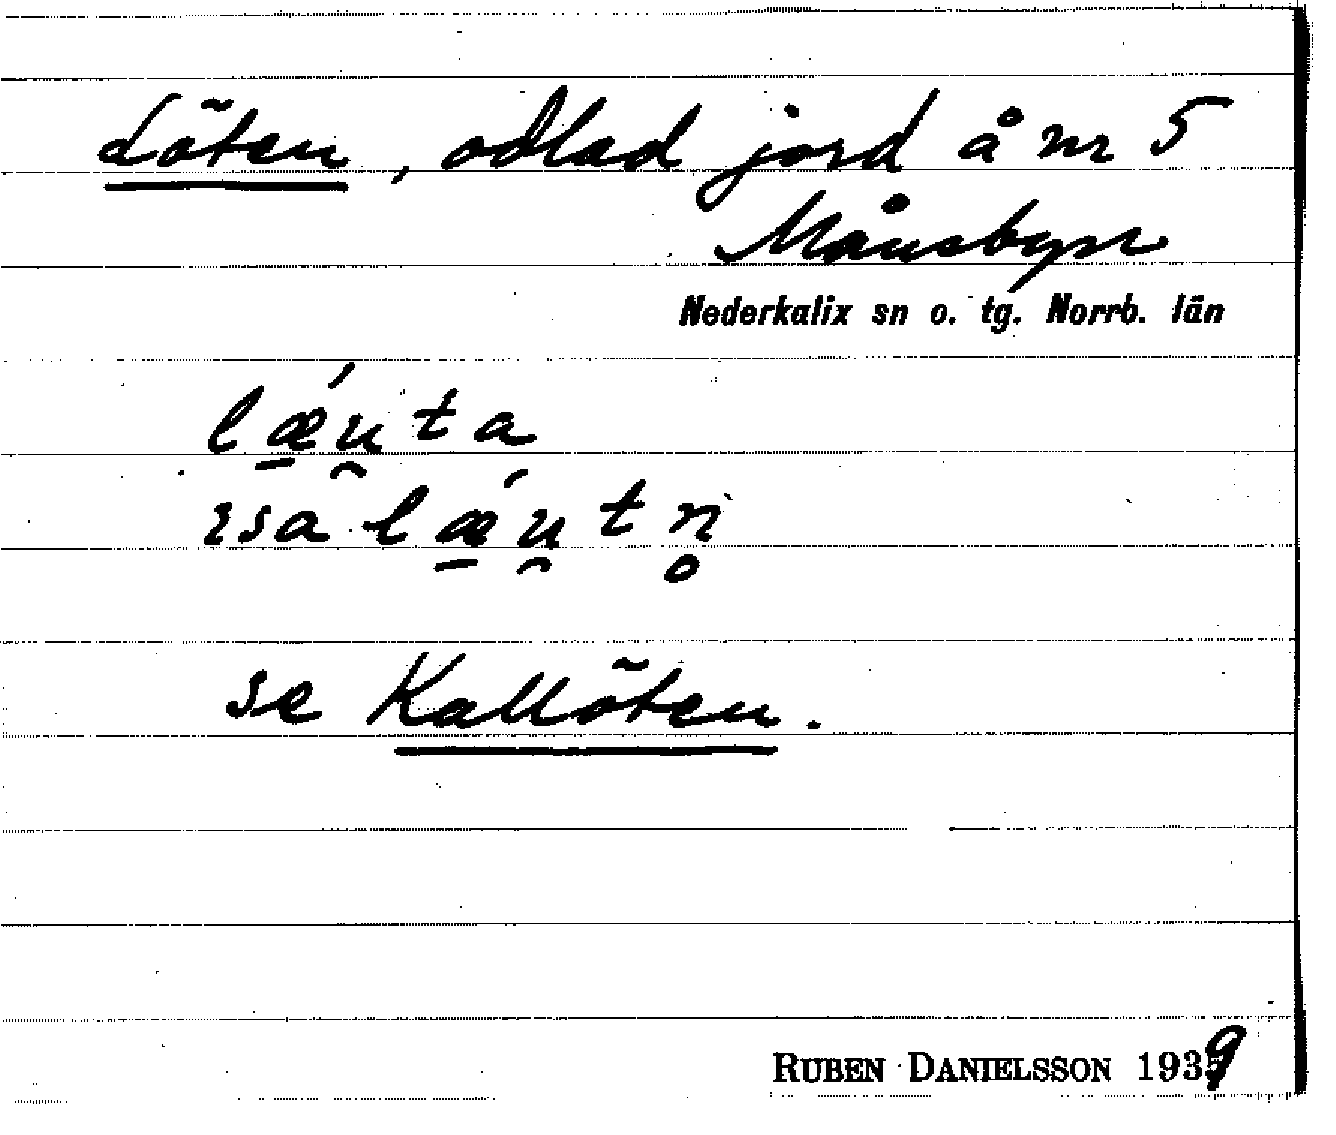 Löten, odlad jord å nr 5
Månsbyn
Nederkalix sn o. tg. Norrb. län
lǽ̱u̯ta
ɪsa lǽ̱u̯tn̥
se Kallöten.
RUBEN DANIELSSON 1939